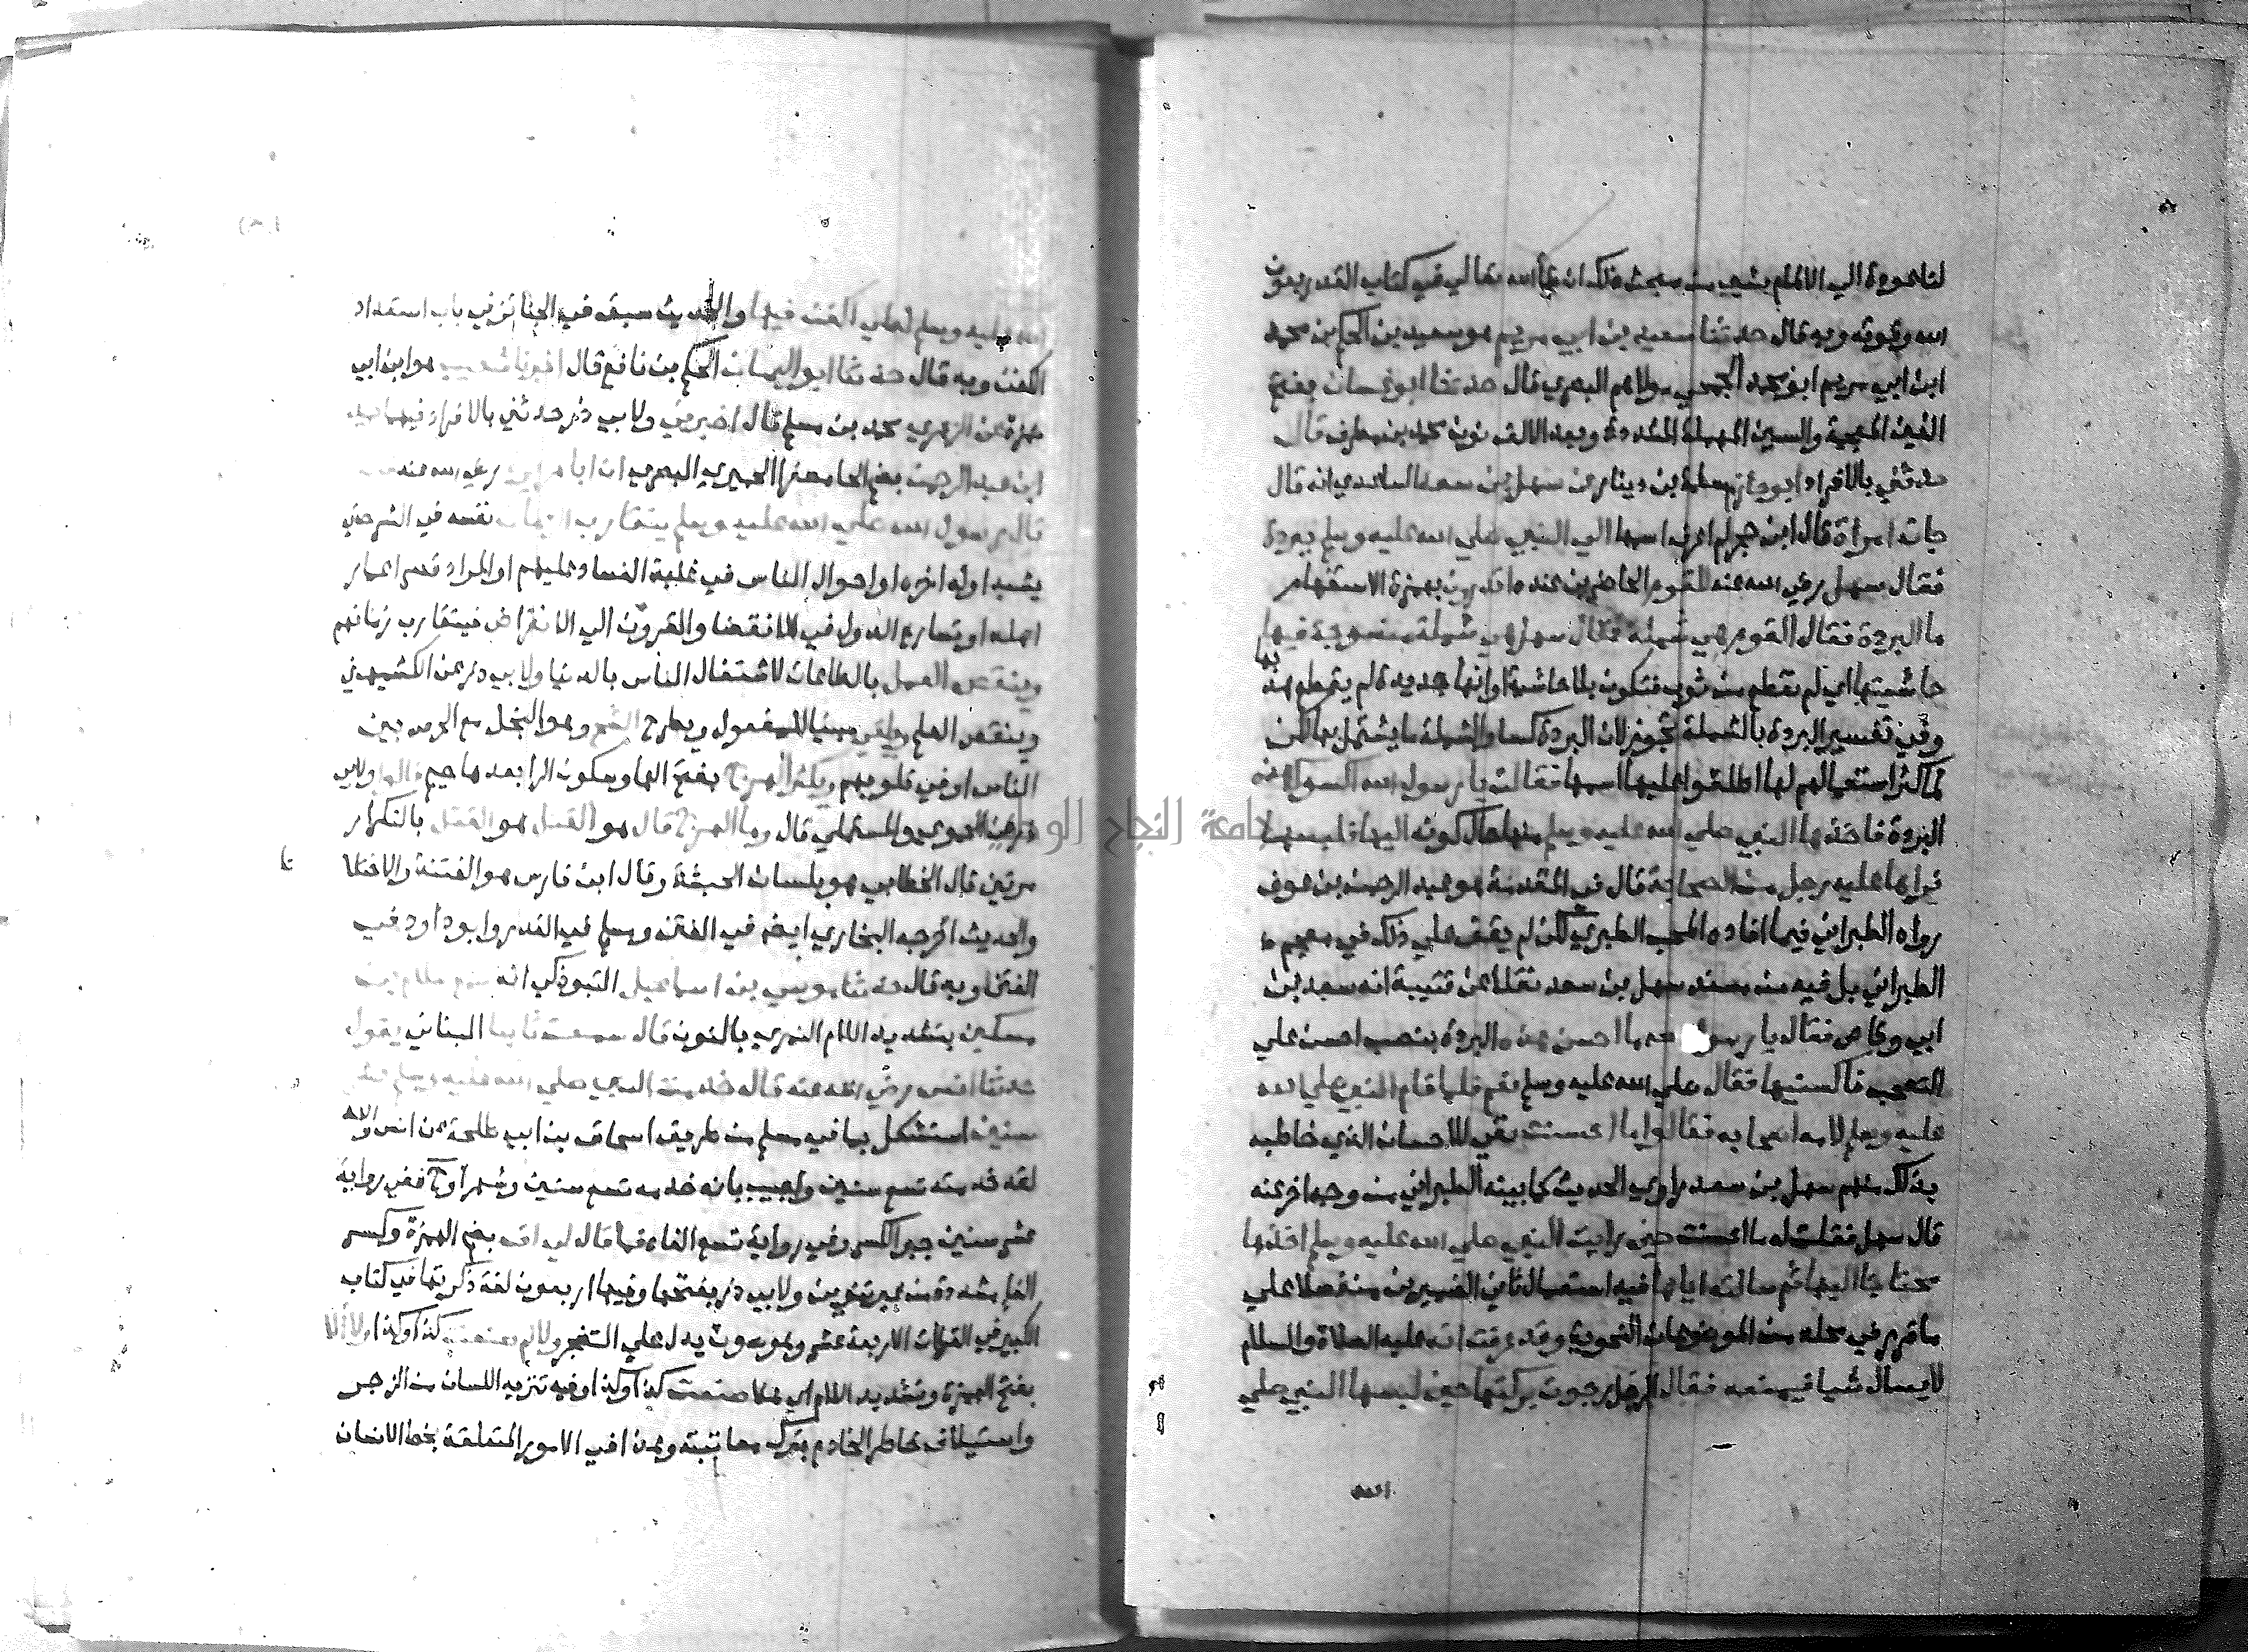 لنا عودة الي الالمام بشي من مبحث ذلك ان شا الله تعالي في كتاب القدر بعون
الله وقوته وبه قال حدثنا سعيد بن ابي مريم هو سعيد بن الحكم بن محمد
ابن ابي مريم ابو محمد الجمحي مولاهم البصري قال حدثنا ابو غسان بفتح
الغين المعجمة والسين المهملة المشددة وبعد الالف نون محمد بن مطرف قال
حدثني بالافراد ابو حازم سلمة بن دينار عن سهل بن سعد الساعدي انه قال
جات امراة قال ابن حجر لم اعرف اسمها الي النبي صلي الله عليه وسلم ببردة
فقال سهل رضي الله عنه للقوم الحاضرين عنده اتدرون بهمزة الاستفهام
ما البردة فقال القوم هي شملة فقال سهل هي شملة منسوجة فيها
حاشيتها اي لم تقطع من ثوب فتكون بلا حاشية او انها جديدة لم يقطع هدبها
وفي تفسير البردة بالشملة تجوز لان البردة كسا والشملة ما يشتمل به لكن
لما كثر استعمالهم لها اطلقوا عليها اسمها فقالت يا رسول الله اكسوك هذه
البردة فاخذها النبي صلي الله عليه وسلم منها حال كونه اليها فلبسها
فراها عليه رجل من الصحابة قال في المقدمة هو عبد الرحمن بن عوف
رواه الطبراني فيما افاده المحب الطبري لكن لم يقف علي ذلك في معجم
الطبراني بل فيه من مسند سهل بن سعد نقلا عن قتيبة انه سعد بن
ابي وقاص فقال يا رسول ما احسن هذه البردة بنصب احسن علي
التعجب فاكسنيها فقال صلي الله عليه وسلم نعم فلما قام النبي صلي الله
عليه وسلم لامه اصحابه فقالوا ما احسنت نفي للاحسان الذي خاطبه
بذلك منهم سهل بن سعد راوي الحديث كما بينه الطبراني من وجه اخر عنه
قال سهل فقلت له ما احسنت حين رايت النبي صلي الله عليه وسلم اخذها
محتاجا اليها ثم سالته اياها فيه استعمال ثاني الضميرين منفصلا علي
ما قرر في محله من الموضوعات النحوية وقد عرفت انه عليه الصلاة والسلام
لا يسال شيا فيمنعه فقال الرجل رجوت بركتها حين لبسها النبي صلي
الله
الله عليه وسلم لعلي اكفن فيها والحديث سبق في الجنائز في باب استعداد
الكفن وبه قال حدثنا ابو اليمان الحكم بن نافع قال اخبرنا شعيب هو ابن ابي
حمزة عن الزهري محمد بن مسلم قال اخبرني ولابي ذر حدثني بالافراد فيهما
ابن عبد الرحمن بضم الحا مصغرا الحميري البصري ان ابا هريرة رضي الله عنه
قال رسول الله صلي الله عليه وسلم يتقارب الزمان نفسه في الشر حتي
يشبه اوله اخره او احوال الناس في غلبة الفساد عليهم او المراد قصر اعمار
اهله او تسارع الدول في الانقضا والقرون الي الانقراض فيتقارب زمانهم
وينقص العمل بالطاعات لاشتغال الناس بالدنيا ولابي ذر عن الكشميهني
وينقص العلم ويلقي مبنيا للمفعول ويطرح الشح وهو البخل مع الحرص بين
الناس او في قلوبهم ويكثر الهرج بفتح الها وسكون الرا بعدها جيم قالوا ولابي
ذر عن الحموي والمستملي قال وما الهرج قال هو القتل هو القتل بالتكرار
مرتين قال الخطابي هو بلسان الحبشة وقال ابن فارس هو الفتنة والاختلا
والحديث اخرجه البخاري ايضا في الفتن ومسلم في القدر وابو داود في
الفتن وبه قال حدثنا موسي بن اسماعيل التبوذكي انه سمع سلام بن
مسكين بتشديد اللام النمري بالنون قال سمعت ثابتا البناني يقول
حدثنا انس رضي الله عنه قال خدمت النبي صلي الله عليه وسلم عشر
سنين استشكل بما في مسلم من طريق اسحاق بن ابي طلحة عن انس والله
لقد خدمته تسع سنين واجيب بانه خدمه تسع سنين واشهرا ففي رواية
عشر سنين جبر الكسر وفي رواية تسع الغاه فما قال لي اف بضم الهمزة وكسر
الفا مشددة من غير تنوين ولابي ذر بفتحها وفيها اربعون لغة ذكرتها في كتاب
الكبير في القرات الاربعة عشر وهو صوت يدل علي التضجر ولا لم صنعت كذا وكذا ولا الا
بفتح الهمزة وتشديد اللام اي هلا صنعت كذا وكذا وفيه تنزيه اللسان من الزجر
واستيلاف خاطر الخادم بترك معاتبته وهذا في الامور المتعلقة بخط الانسان
جامعة النجاح الوطنية